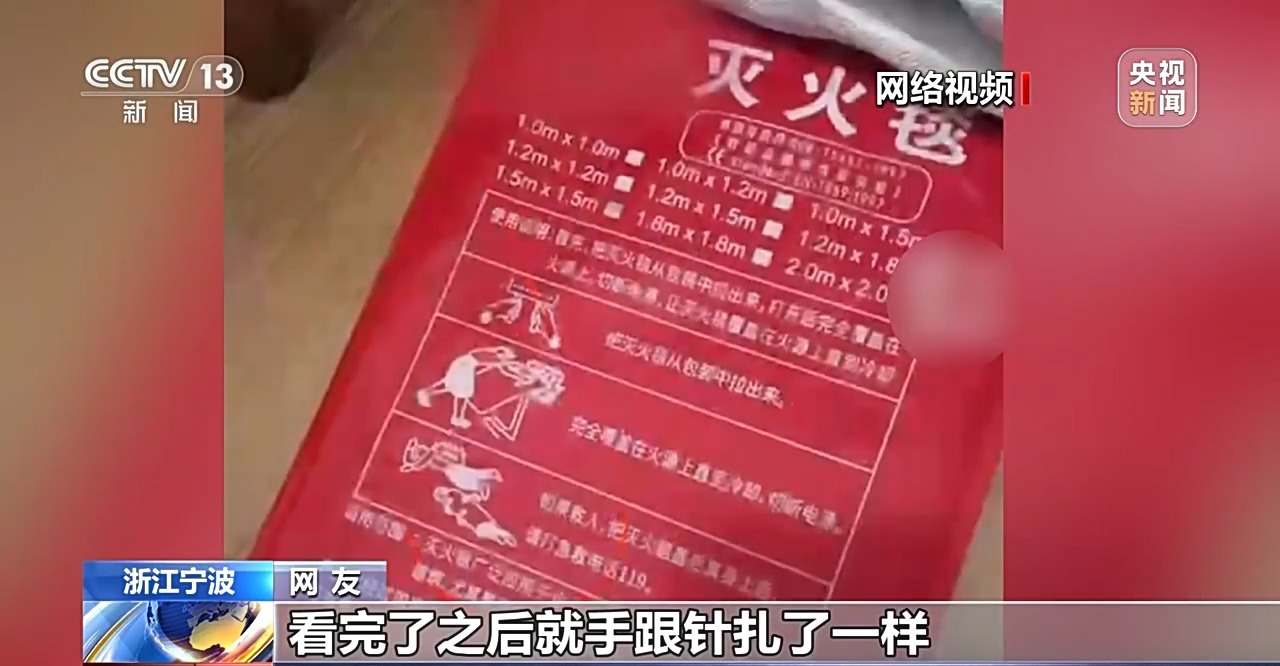 CCTV 13
新闻
央视
新闻
网络视频
灭火毯
1.0m x 1.0m 1.0m x 1.2m 1.0m x 1.5m
1.2m x 1.2m 1.2m x 1.5m 1.2m x 1.8
1.5m x 1.5m 1.8m x 1.8m 2.0m x 2.0
使用说明：首先，把灭火毯从包装中拉出来，打开后完全覆盖在
火源上，切断电源，让灭火毯覆盖在火源上直到冷却
把灭火毯从包装中拉出来。
完全覆盖在火源上直到冷却，切断电源。
如果救人，把灭火毯
请打急救电话119。
灭火毯广泛应用于
浙江宁波
网友
看完了之后就手跟针扎了一样